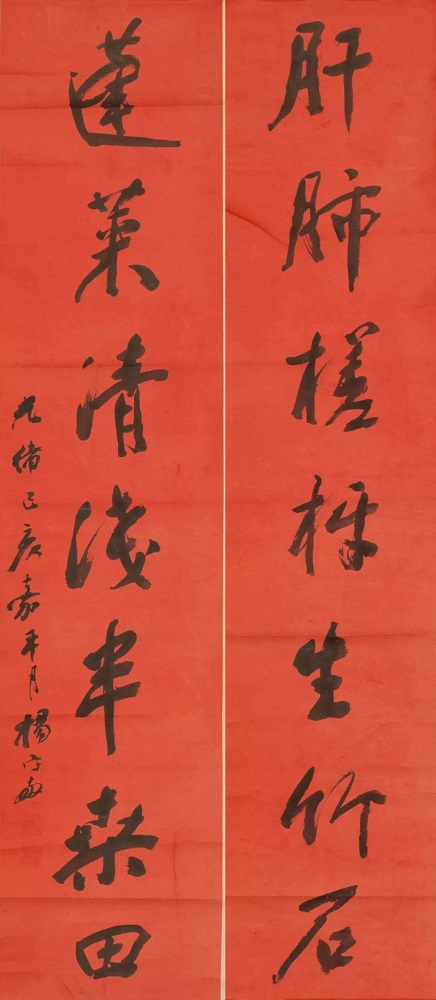 肝肺槎枒生竹石
蓬萊清淺半桑田
光緒己亥嘉平月楊守敬